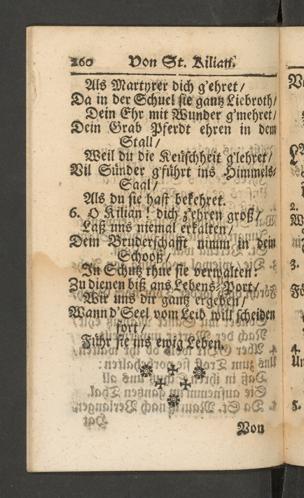 260 Von St. Kilian.
Als Martyrer dich g'ehret/
Da in der Schuel sie gantz Liebroth/
Dein Ehr mit Wunder g'mehret/
Dein Grab Pferdt ehren in dem
Stall/
Weil du die Keuschheit g'lehret/
Vil Sünder g'führt ins Himmels-
Saal/
Als du sie hast bekehret.
6. O Kilian! dich z'ehren groß/
Laß uns niemal erkalten/
Dein Bruderschafft nimm in dein
Schooß/
In Schutz thue sie verwalten:
Zu dienen biß ans Lebens-Port/
Wir uns dir gantz ergeben/
Wann d'Seel vom Leib will scheiden
fort/
Führ sie ins ewig Leben.
Von